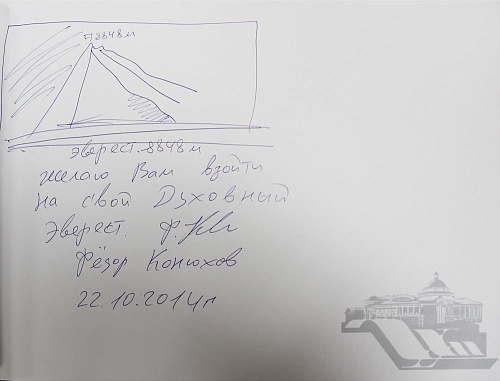 8848 м
Эверест. 8848 м
желаю Вам взойти
на свой Духовный
Эверест.
Фёдор Конюхов
22.10.2014 г